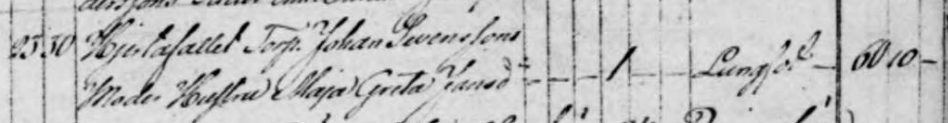 23 30 Hjertafallet Torp. Johan Svensons
Moder Hustru Maja Greta Jansd: — — 1 — Lungsot — 60 10 —